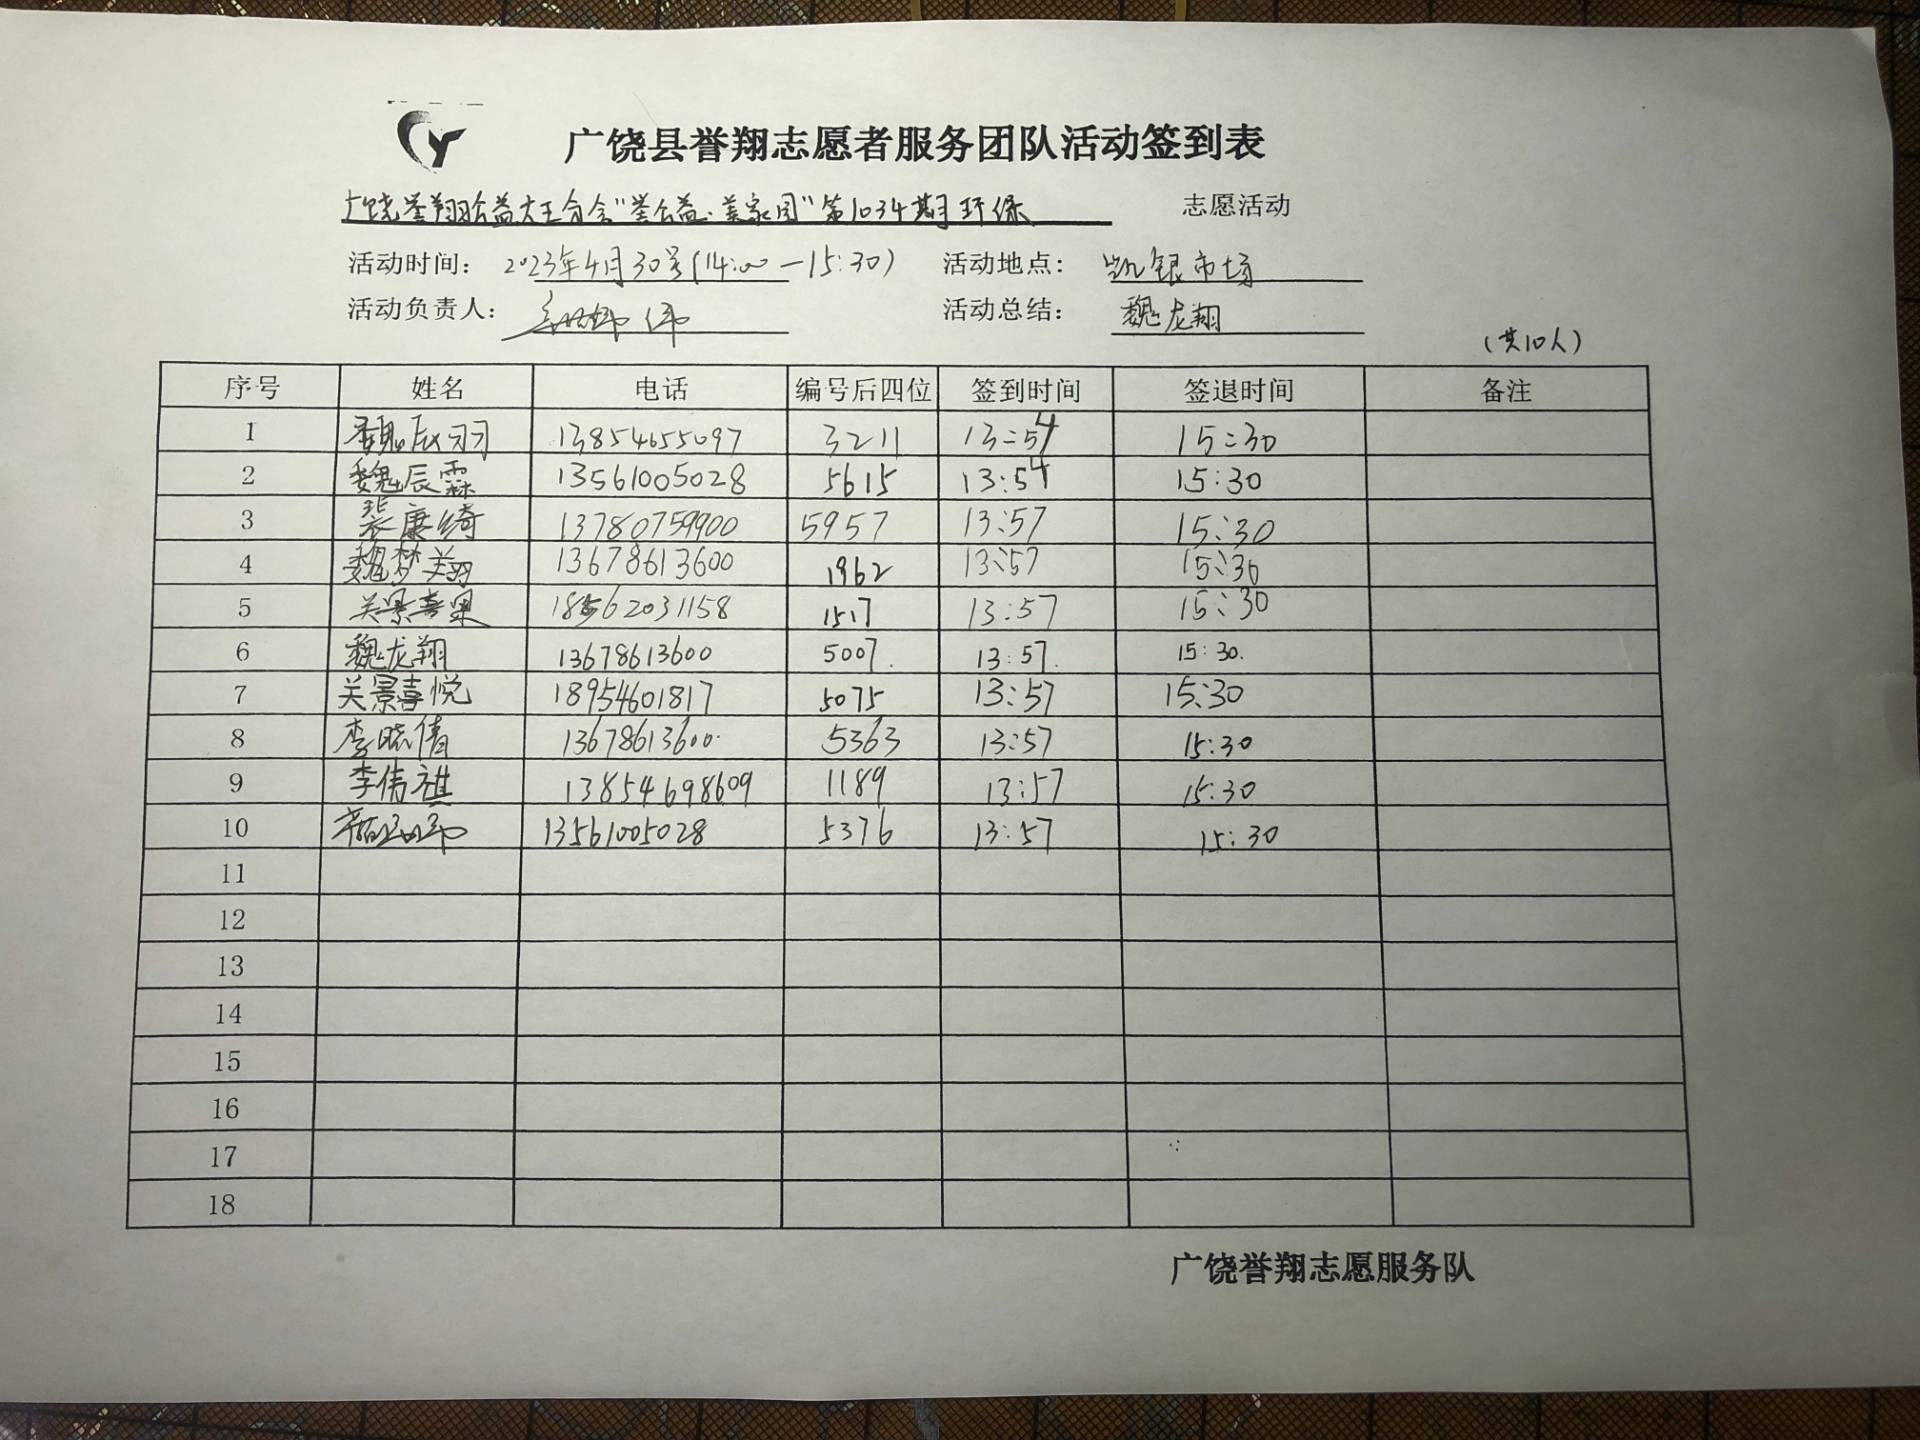 广饶县誉翔志愿者服务团队活动签到表
广饶誉翔公益大王分会"誉公益·美家园"第1034期环保 志愿活动
活动时间: 2023年4月30号(14:00—15:30) 活动地点: 凯银市场
活动负责人: 活动总结: 魏龙翔
(共10人)
序号 姓名 电话 编号后四位 签到时间 签退时间 备注
1 魏辰羽 13854655097 3211 13:54 15:30
2 魏辰霖 13561005028 5615 13:54 15:30
3 裴康绮 13780759900 5957 13:57 15:30
4 魏梦翔 13678613600 1962 13:57 15:30
5 关景喜果 18562031158 1517 13:57 15:30
6 魏龙翔 13678613600 5007. 13:57. 15:30.
7 关景喜悦 18954601817 5075 13:57 15:30
8 李晓倩 13678613600 5363 13:57 15:30
9 李倩祺 13854698609 1189 13:57 15:30
10 13561005028 5376 13:57 15:30
11
12
13
14
15
16
17
18
广饶誉翔志愿服务队